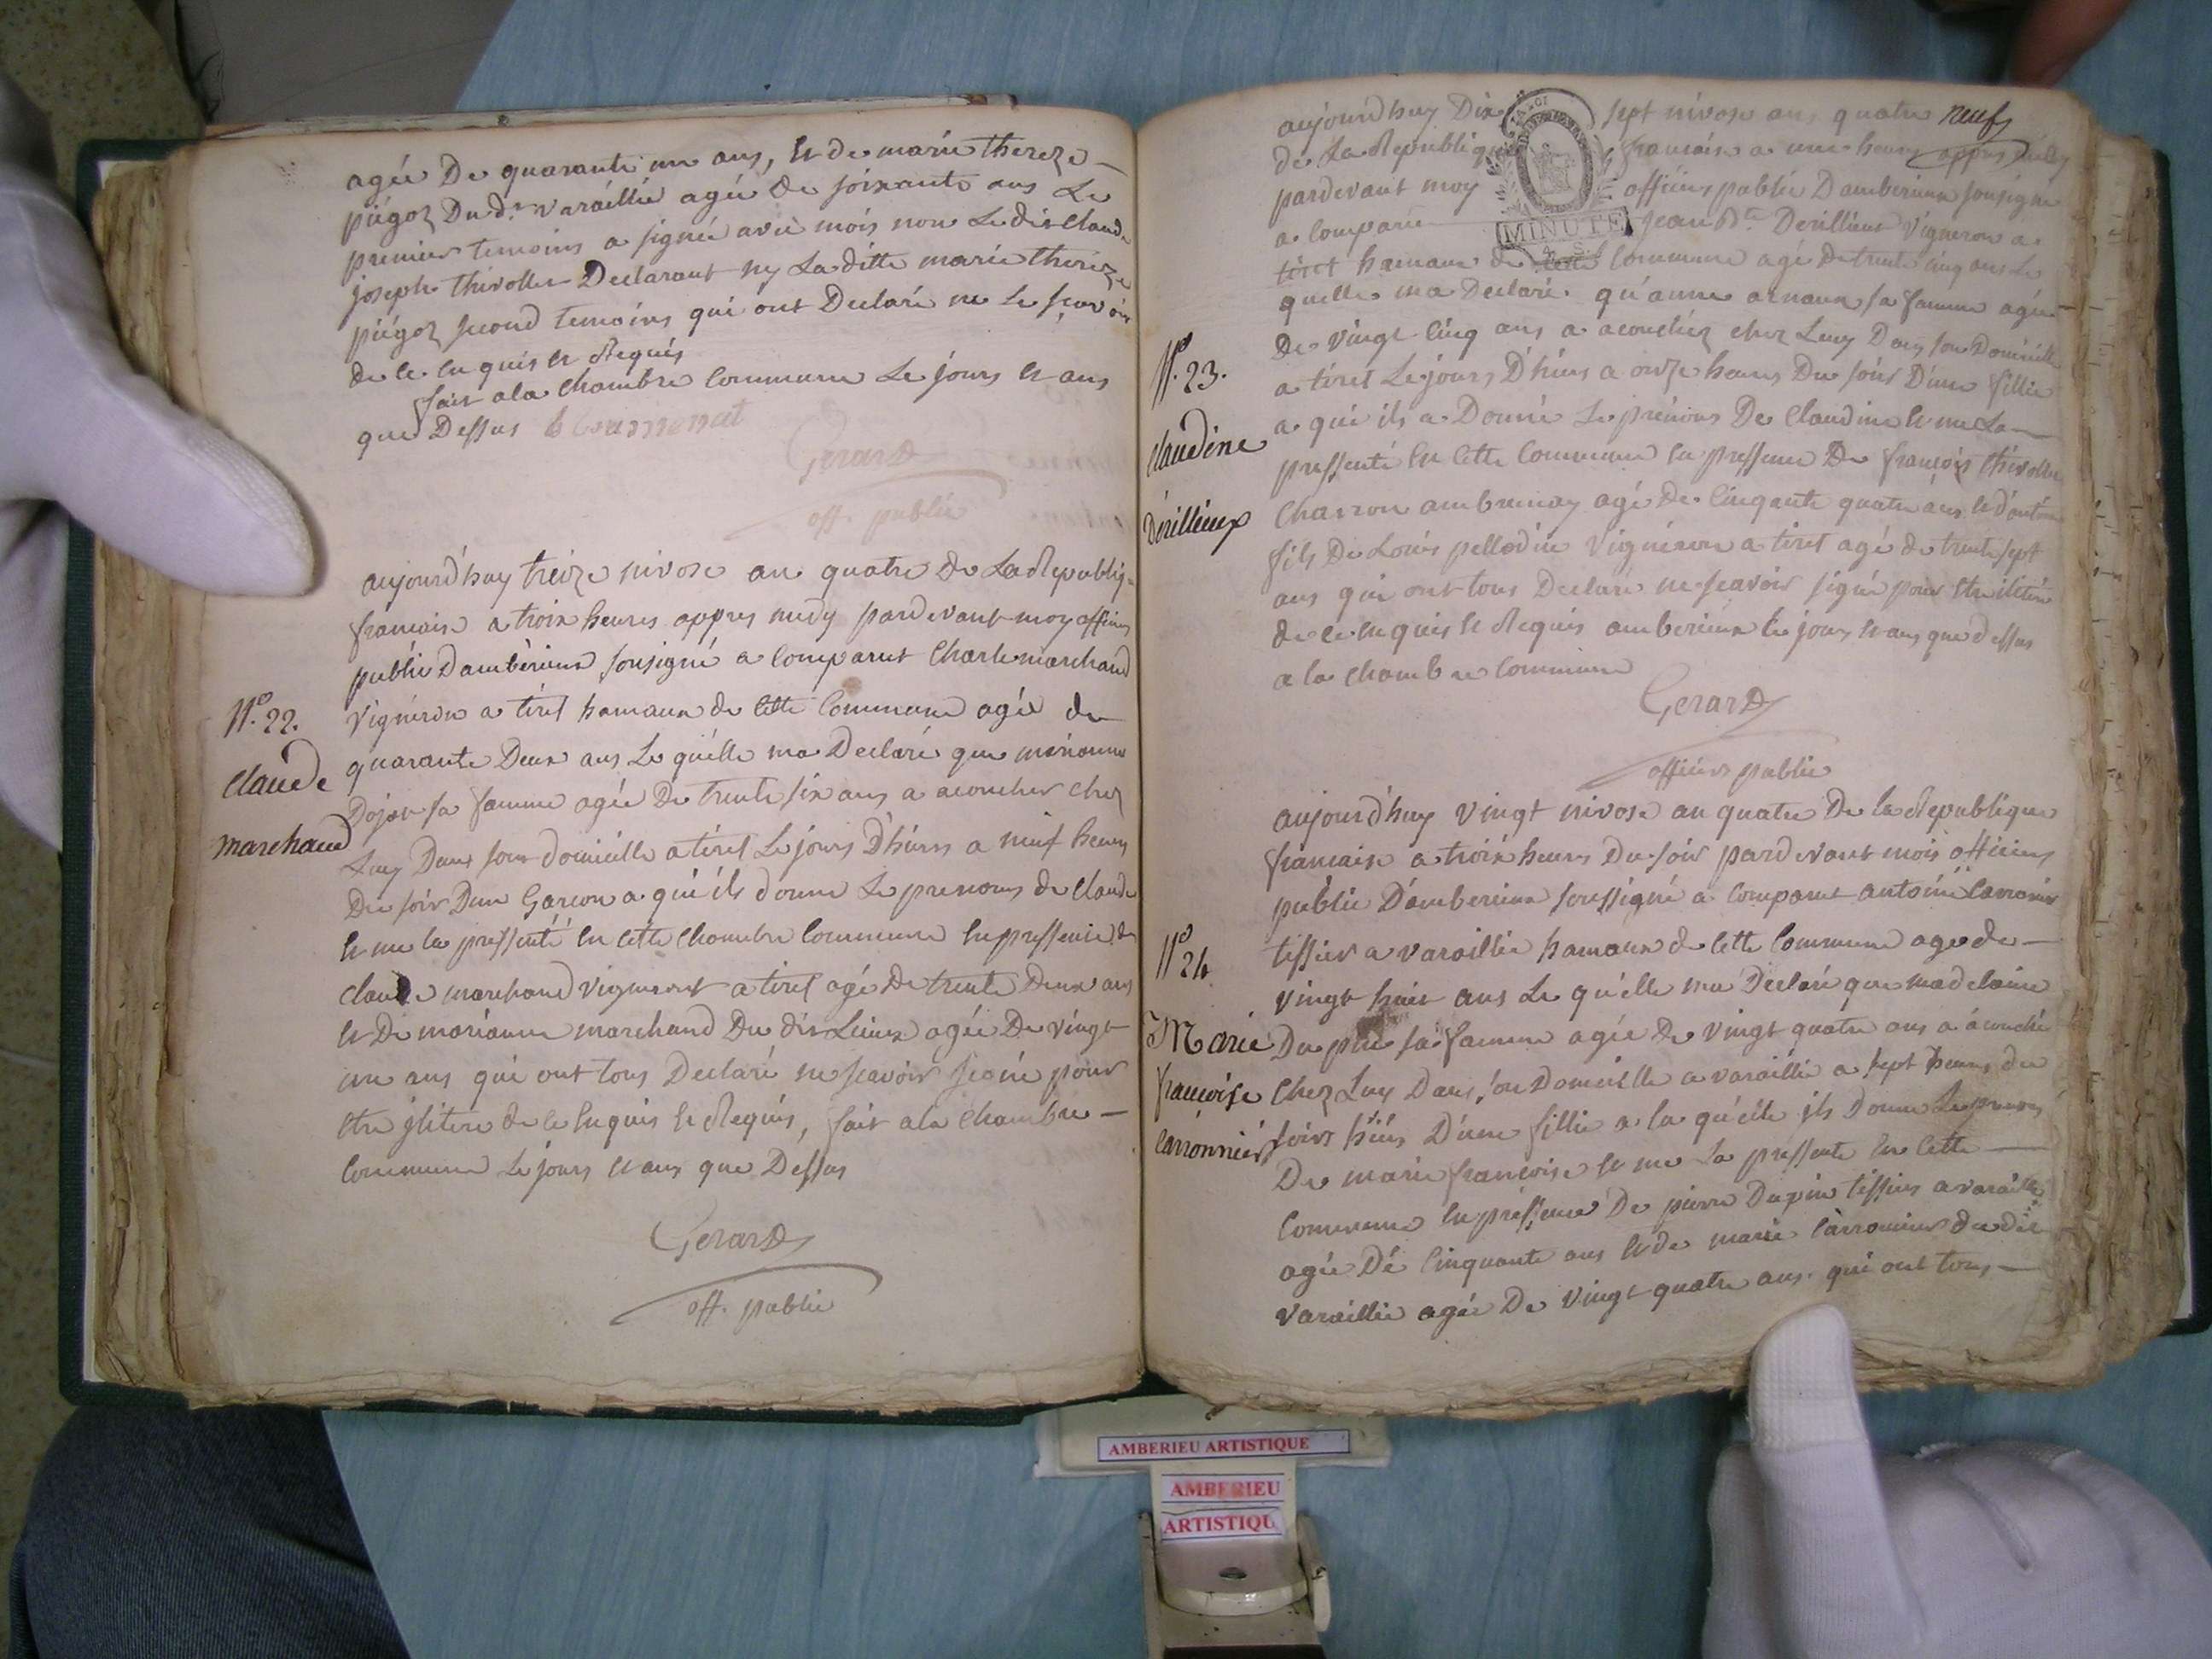 agée De quarante un ans, et de marie thereze
piégoz Du d.t varéillié agée de soixante ans Le
premier temoins a signé avec mois non Le dit Claude
joseph thivollet Declarant ny La ditte marie thereze
piégoz second temoins qui ont Declaré ne Le scavoir
de ce enquis et Requis
fait a la Chambre Commune Le jours et ans
que Dessus
Gerard
off. public
aujourd'huy treize nivose an quatre de La Republiq
francaise a troix heures appres midy pardevant moy officier
public Dambèrieux sousigné a Comparut Charle marchand
N.o 22.
vigneron a tiret hamaux de Cette Commune agée de
quarante Deux ans Le quélle ma Declaré que marianne
Claude
Dojat sa famme agée De trente six ans a acoucher chez
marchand
Luy Dans son domicille a tiret Le jours D'hiers a neuf heures
Du soir Dun Garcon a qui ils donne Le prenoms de Claude
et me la pressenté en cette Chambre Commune en pressence de
claude marchand vigneront a tiret agé De trente Deux ans
et De marianne marchand Du dit Lieux agée De vingt
un ans qui ont tous Declaré ne scavoir signé pour
etre jlitéré de ce enquis et Requis, fait a la Chambre
Commune Le jours et ans que Dessus
Gerard
off. public
neuf
aujourd'huy Dix sept nivose ans quatre
de La Republique francaise a une heure appres midy
pardevant moy officier public Damberieux sousigné
MINUTE
a Comparu jean B.te Derillieux vigneron a
tiret hamaux de cette Commune agé De trente cinq ans Le
quelle ma Declaré qu'anne arnaux sa famme agée
N.o 23.
de vingt Cinq ans a acouchéz chez Luy Dans son Domicille
a tiret Le jours D'hiers a onze heures Du soir D'une fillie
Claudine
a qui ils a Donné Le prénoms De Claudine et me La
pressenté en Cette Commune en pressence De francois thivollet
Dérillieux
Charron ambrunay agé De Cinqante quatre ans et d'antoine
fils De Louis pellodin vigneron a tiret agé de trente sept
ans qui ont tous Declaré ne scavoir signé pour etre iletéré
de ce enquis et Requis amberieux le jours et ans que dessus
a la chambre Commune
Gerard
officier public
aujourd'huy vingt nivose an quatre De la Republique
francaise a troix heures Du soir pardevant mois officiers
public D'amberieux soussigné a Comparut antoine Carronier
N.o 24
tissier a varaillie hamaux de Cette Commune age de
vingt huit ans Le qu'elle ma Declaré que madelaine
Marie
Du pin sa famme agée De vingt quatre ans a acouché
francoise
Chez Luy Dans son Domicille a varaillie a sept heures du
Carronnier
soirs hiérs D'une fillie a la qu'elle ils Donne Le prenoms
De marie francoise et me La pressente en Cette
Commune en préssence De pierre Dupin tissier a varaillie
agée Dé Cinquante ans et de marie Carronier du dit
varaillie agée De vingt quatre ans qui ont tous
AMBERIEU ARTISTIQUE
AMBERIEU
ARTISTIQU